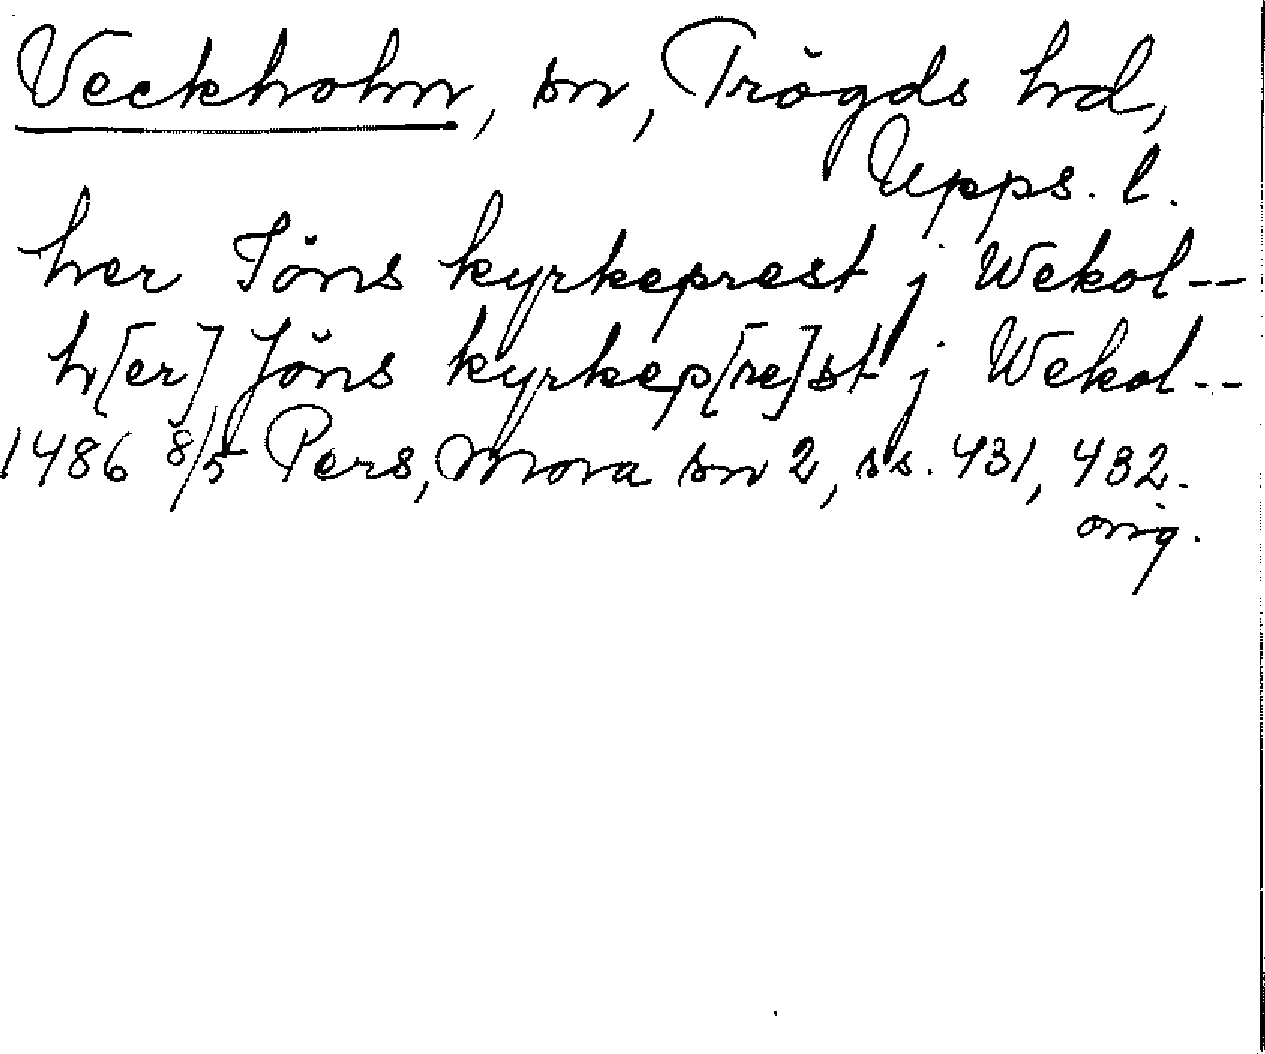 Veckholm, sn, Trögds hd,
Upps. l.
her Jöns kyrkeprest j Wekol--
h[er] Jöns kyrkep[re]st j Wekol--
1486 8/5 Pers, Mora sn 2, ss. 431, 432.
orig.